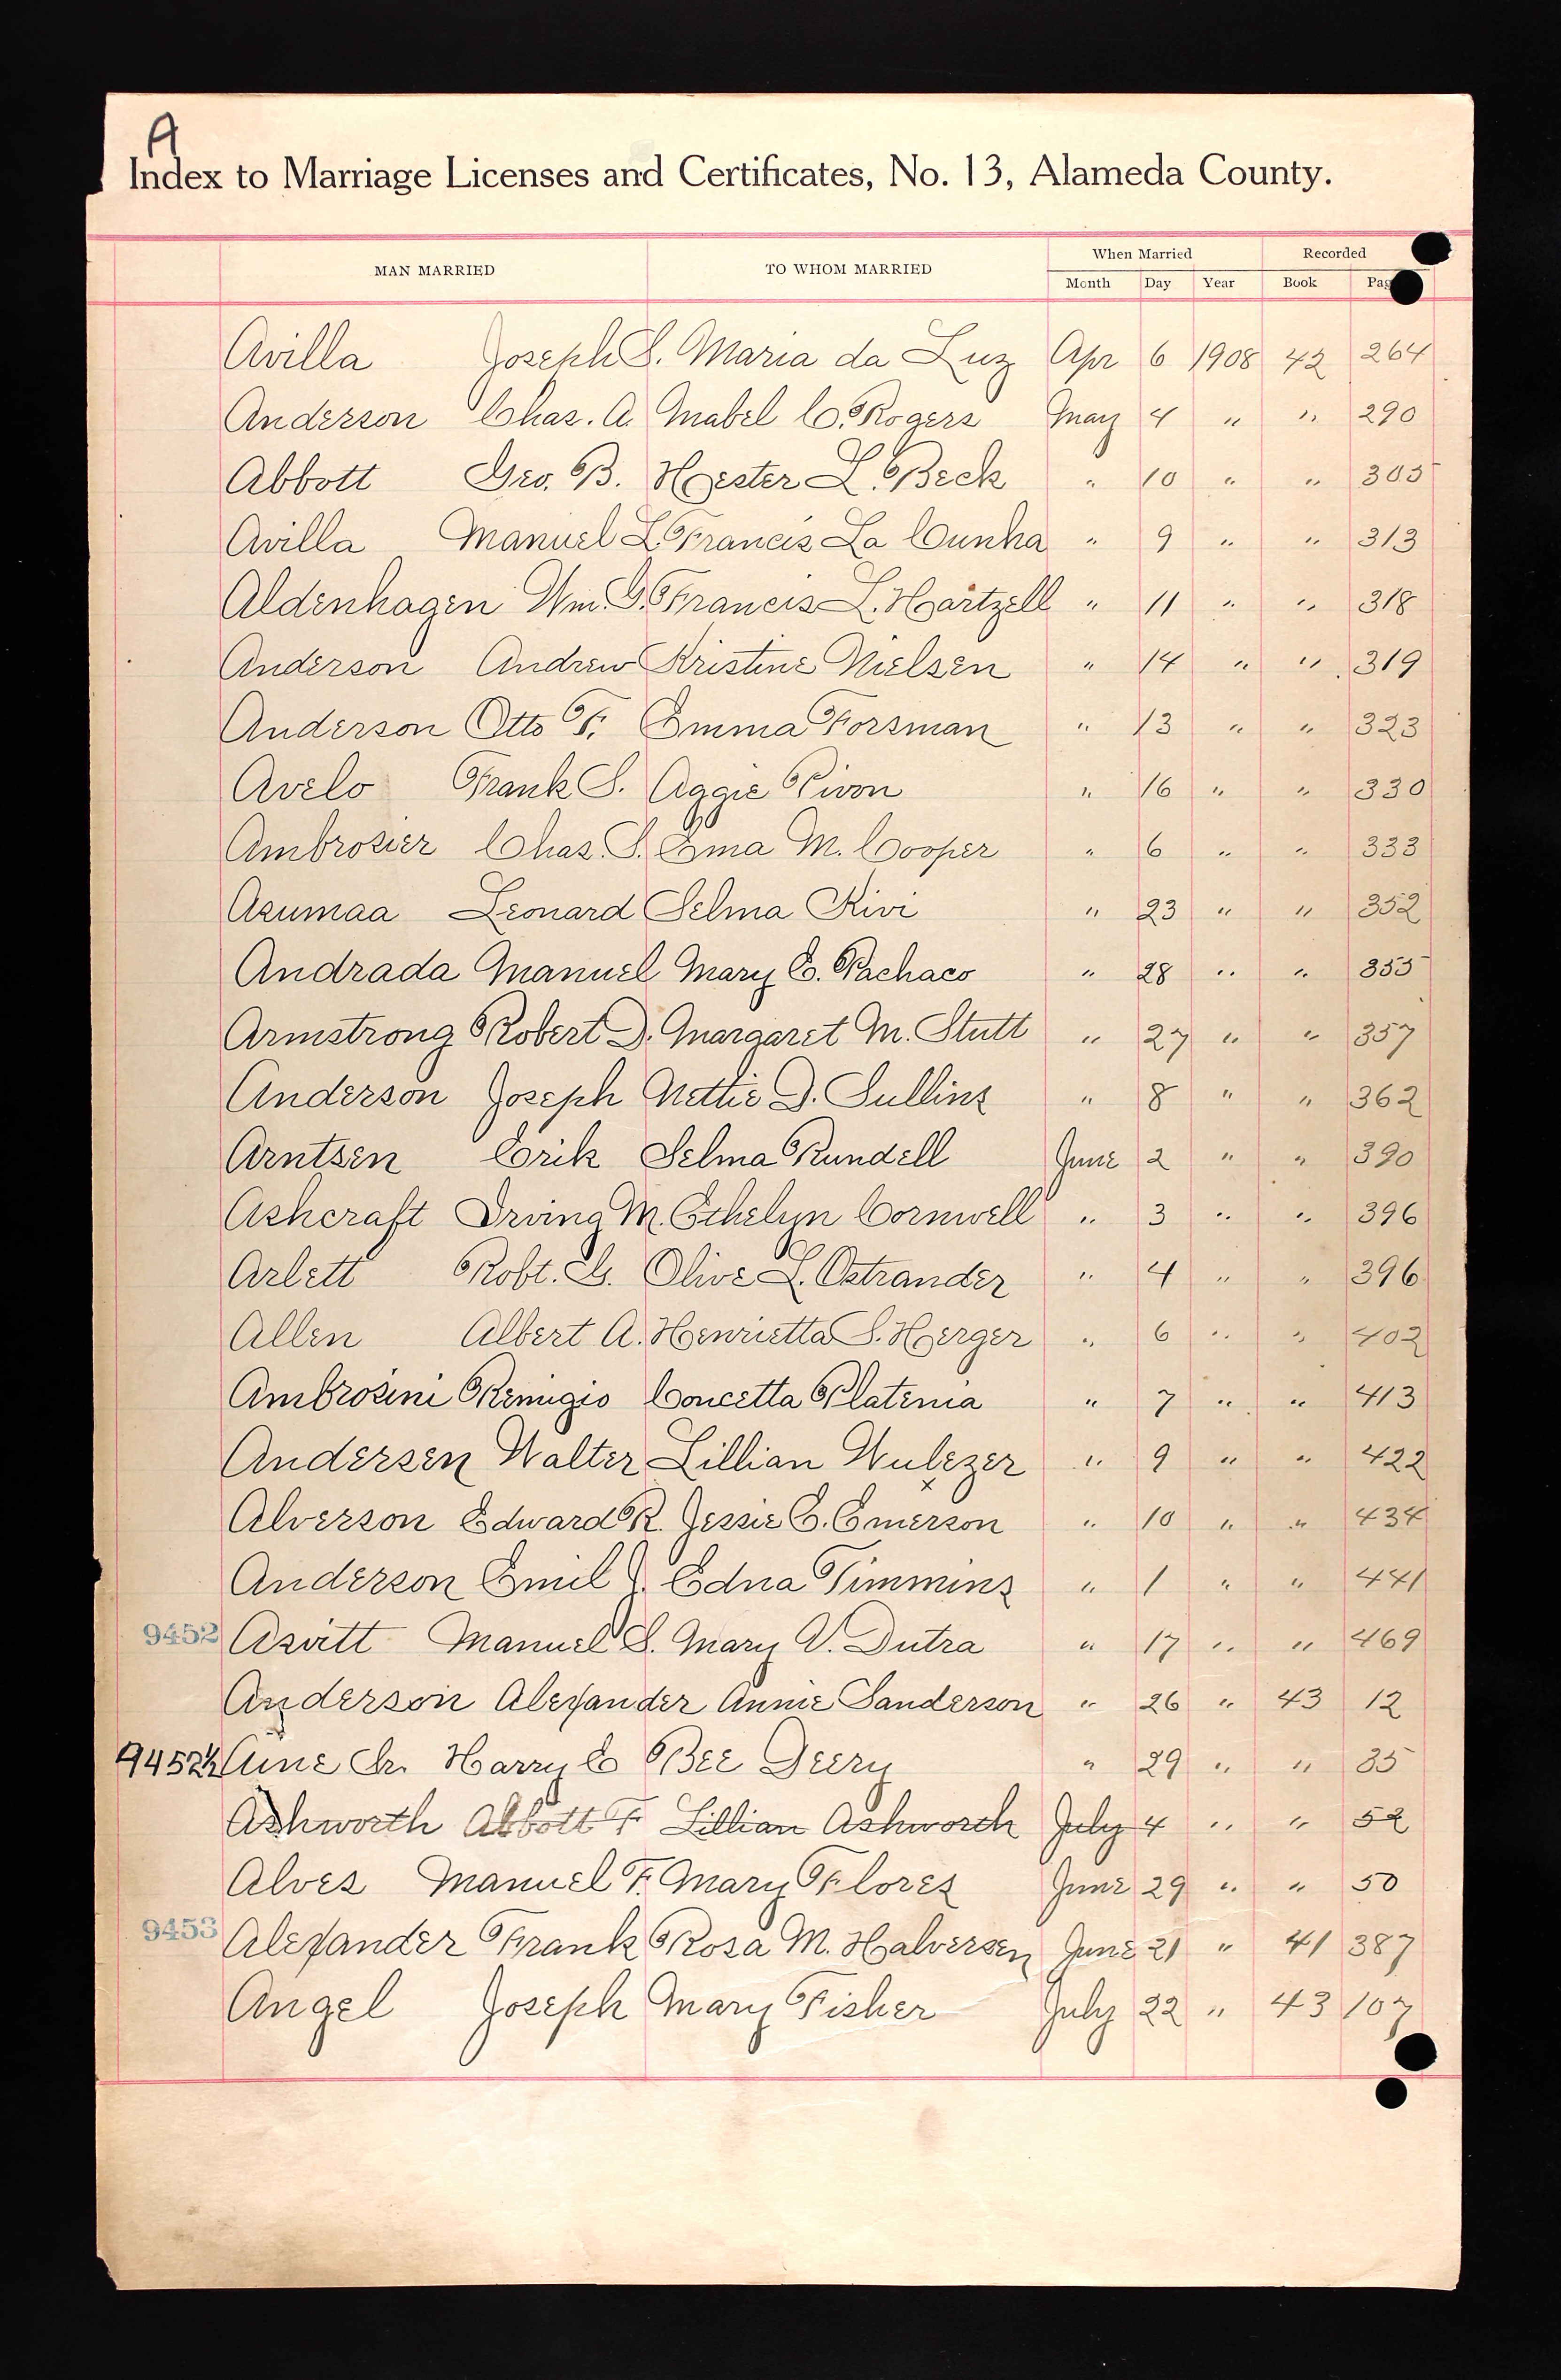 A
Index to Marriage Licenses and Certificates, No. 13, Alameda County.
MAN MARRIED TO WHOM MARRIED When Married Recorded
Month Day Year Book Pag
Avilla Joseph S. Maria da Luz Apr 6 1908 42 264
Anderson Chas. A. Mabel C. Rogers May 4 " " 290
Abbott Geo. B. Hester L. Beck " 10 " " 305
Avilla Manuel L. Francis La Cunha " 9 " " 313
Aldenhagen Wm. G. Francis L. Hartzell " 11 " " 318
Anderson Andrew Kristine Nielsen " 14 " " 319
Anderson Otto F. Emma Forsman " 13 " " 323
Avelo Frank S. Aggie Pivon " 16 " " 330
Ambrosier Chas. S. Ema M. Cooper " 6 " " 333
Asumaa Leonard Selma Kivi " 23 " " 352
Andrada Manuel Mary E. Pachaco " 28 " " 355
Armstrong Robert D. Margaret M. Stutt " 27 " " 357
Anderson Joseph Nettie D. Sullins " 8 " " 362
Arntsen Erik Selma Rundell June 2 " " 390
Ashcraft Irving M. Ethelyn Cornwell " 3 " " 396
Arlett Robt. G. Olive L. Ostrander " 4 " " 396
Allen Albert A. Henrietta S. Herger " 6 " " 402
Ambrosini Remigio Concetta Platenia " 7 " " 413
Andersen Walter Lillian Wulezer " 9 " " 422
x
Alverson Edward R. Jessie E. Emerson " 10 " " 434
Anderson Emil J. Edna Timmins " 1 " " 441
9452 Asvitt Manuel S. Mary V. Dutra " 17 " " 469
Anderson Alexander Annie Sanderson " 26 " 43 12
9452½ Aune Jr. Harry E Bee Deery " 29 " " 35
Ashworth Abbott F. Lillian Ashworth July 4 " " 52
Alves Manuel F. Mary Flores June 29 " " 50
9453 Alexander Frank Rosa M. Halversen June 21 " 41 387
Angel Joseph Mary Fisher July 22 " 43 107